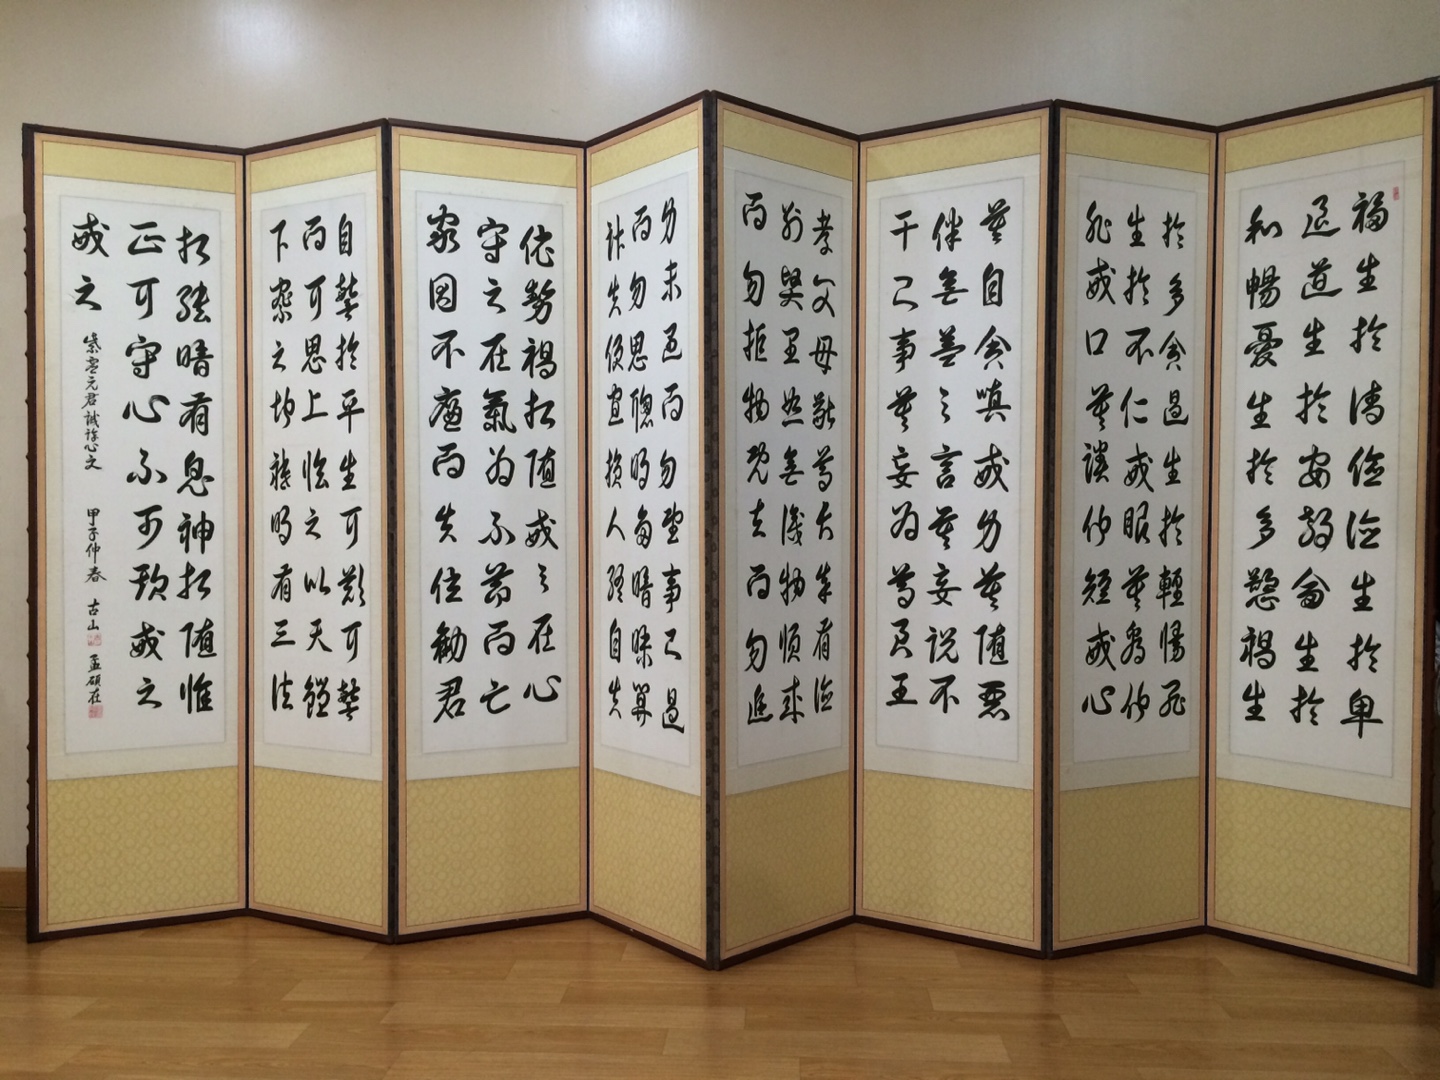 福生於清儉德生於卑
退道生於安靜命生於
和暢憂生於多慾禍生
於多貪過生於輕慢罪
生於不仁戒眼莫看他
非戒口莫談他短戒心
莫自貪嗔戒身莫隨惡
伴無益之言莫妄說不
干己事莫妄為尊君王
孝父母敬尊長奉有德
別賢愚恕無識物順來
而勿拒物既去而勿追
身未遇而勿望事已過
而勿思聰明多暗昧算
計失便宜損人終自失
依勢禍相隨戒之在心
守之在氣為不節而亡
家因不廉而失位勸君
自警於平生可歎可警
而可思上臨之以天鑑
下察之地祇明有三法
相繼暗有鬼神相隨惟
正可守心不可欺戒之
戒之
紫虛元君誠諭心文 甲子仲春 古山 孟碩